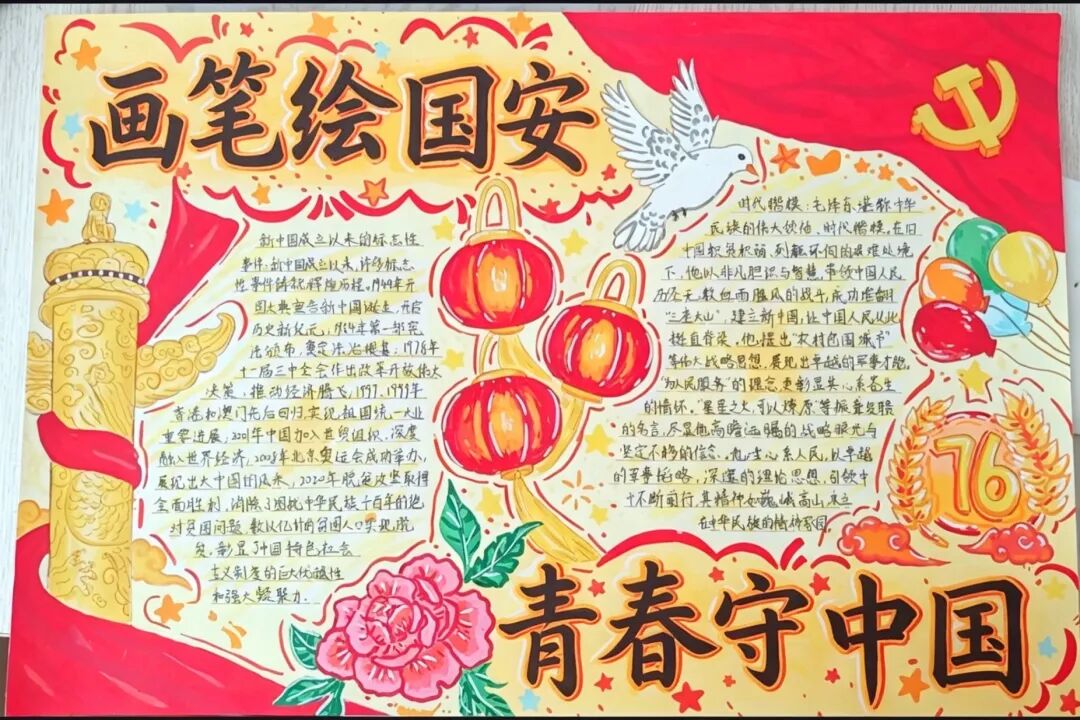 画笔绘国安
新中国成立以来的标志性
事件:新中国成立以来,许多标志
性事件铸就辉煌历程,1949年开
国大典宣告新中国诞生,开启
历史新纪元,1954年第一部宪
法颁布,奠定法治根基;1978年
十一届三中全会作出改革开放伟大
决策,推动经济腾飞,1997、1999年
香港和澳门先后回归,实现祖国统一大业
重要进展,2001年中国加入世贸组织,深度
融入世界经济,2008年北京奥运会成功举办,
展现出大中国的风采,2020年脱贫攻坚取得
全面胜利,消除了困扰中华民族千百年的绝
对贫困问题,数以亿计的贫困人口实现脱
贫,彰显了中国特色社会
主义制度的巨大优越性
和强大凝聚力.
时代楷模:毛泽东堪称中华
民族的伟大领袖、时代楷模,在旧
中国积贫积弱,列强环伺的艰难处境
下,他以非凡胆识与智慧,带领中国人民
历经无数血雨腥风的战斗,成功推翻
"三座大山",建立新中国,让中国人民从此
挺直脊梁,他提出"农村包围城市"
等伟大战略思想,展现出卓越的军事才能,
"为人民服务"的理念,更彰显其心系苍生
的情怀,"星星之火,可以燎原"等振聋发聩
的名言,尽显他高瞻远瞩的战略眼光与
坚定不移的信念,他一生心系人民,以卓越
的军事韬略,深邃的理论思想,引领中
不断前行,其精神如巍峨高山,永立
在中华民族的精神家园
76
青春守中国